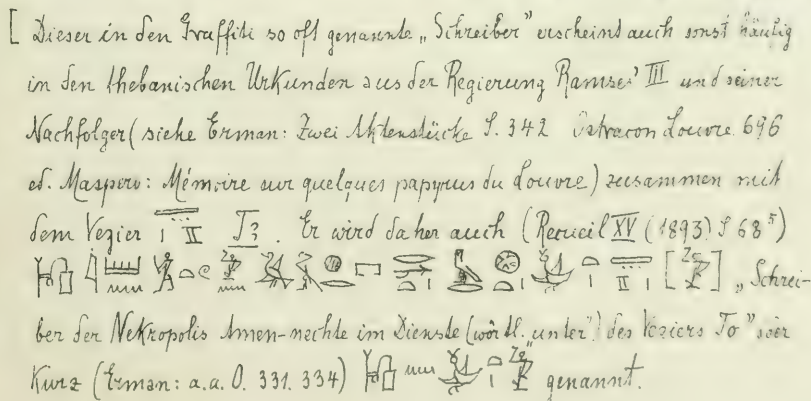 [ Dieser in den Graffiti so oft genannte „Schreiber" erscheint auch sonst häufig
in den thebanischen Urkunden aus der Regierung Ramses' III und seiner
Nachfolger (siehe Erman: Zwei Aktenstücke S. 342 Ostracon Louvre 696
ed. Maspero: Mémoire sur quelques papyrus du Louvre) zusammen mit
dem Vezier T3. Er wird daher auch (Recueil XV (1893) S 68⁵)
„Schrei-
ber der Nekropolis Amen-nechte im Dienste (wörtl. „unter") des Veziers To" oder
Kurz (Erman: a.a.O. 331. 334) genannt.